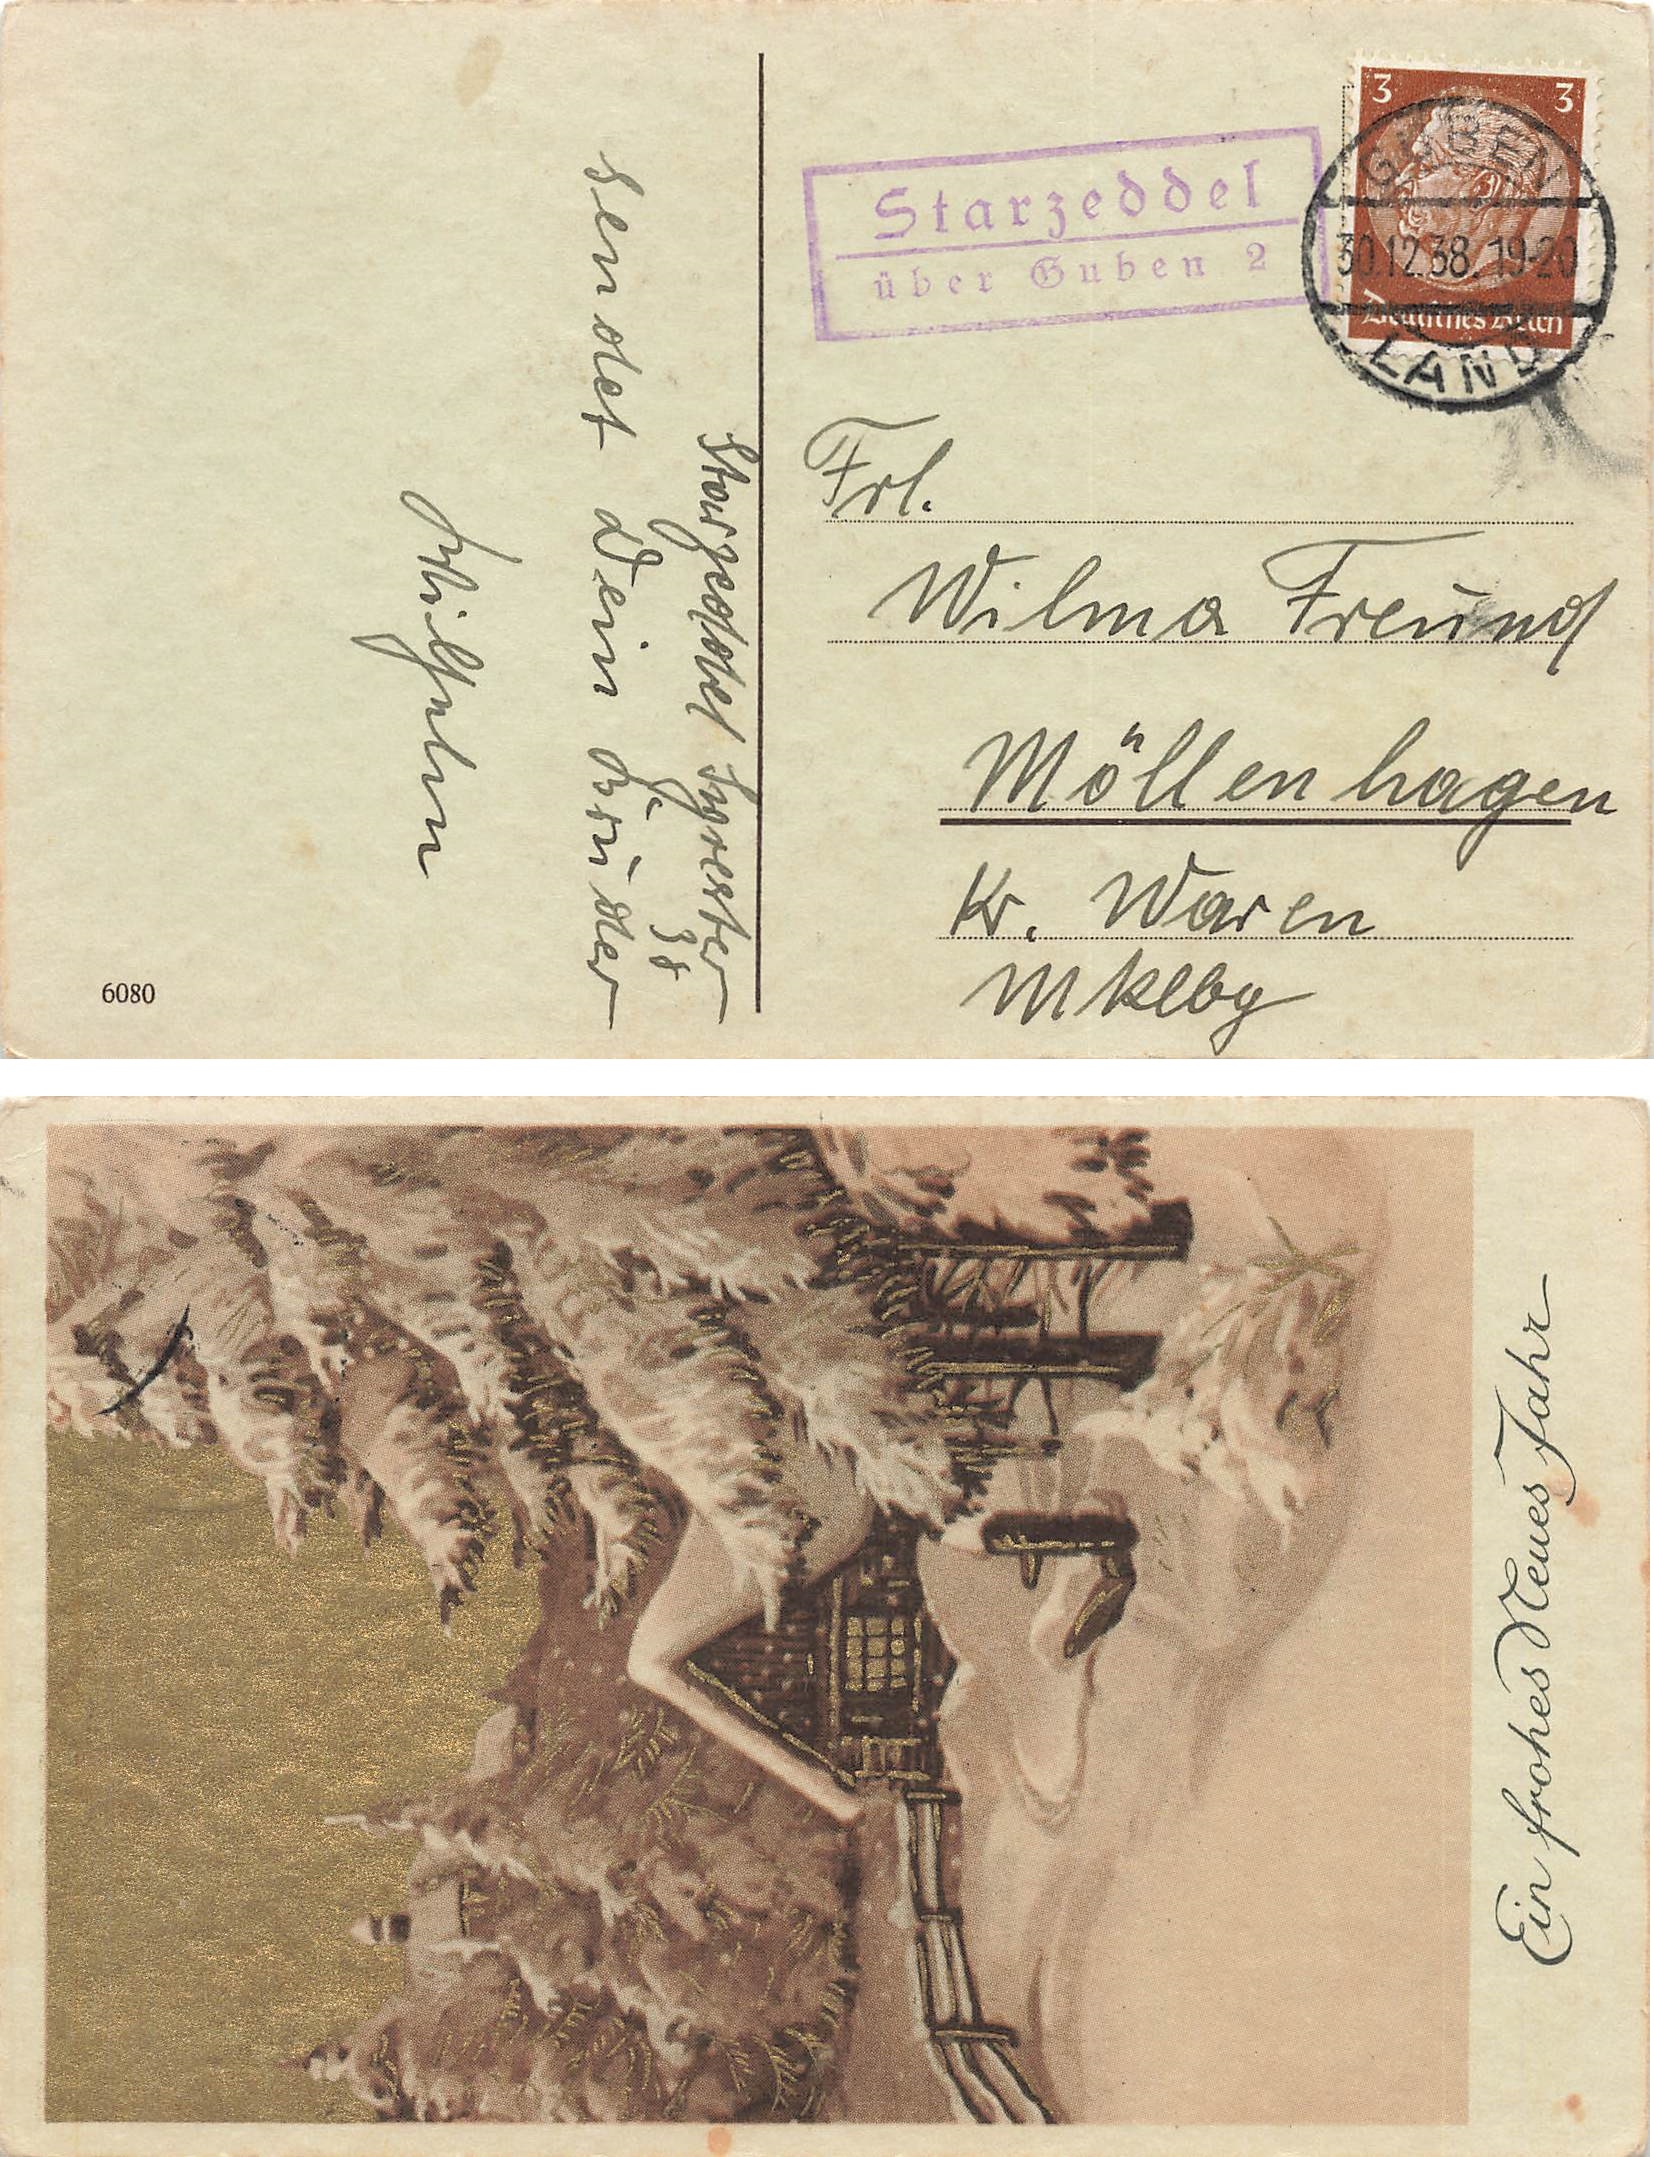 3 3
Deutsches Reich
GUBEN
30.12.38.19-20
LAND
Starzeddel
über Guben 2
Frl.
Wilma Freund
Möllenhagen
Kr. Waren
Mklbg
Starzeddel
38
sendet Dein Brŭder
Wilhelm
6080
Ein frohes Neues Jahr